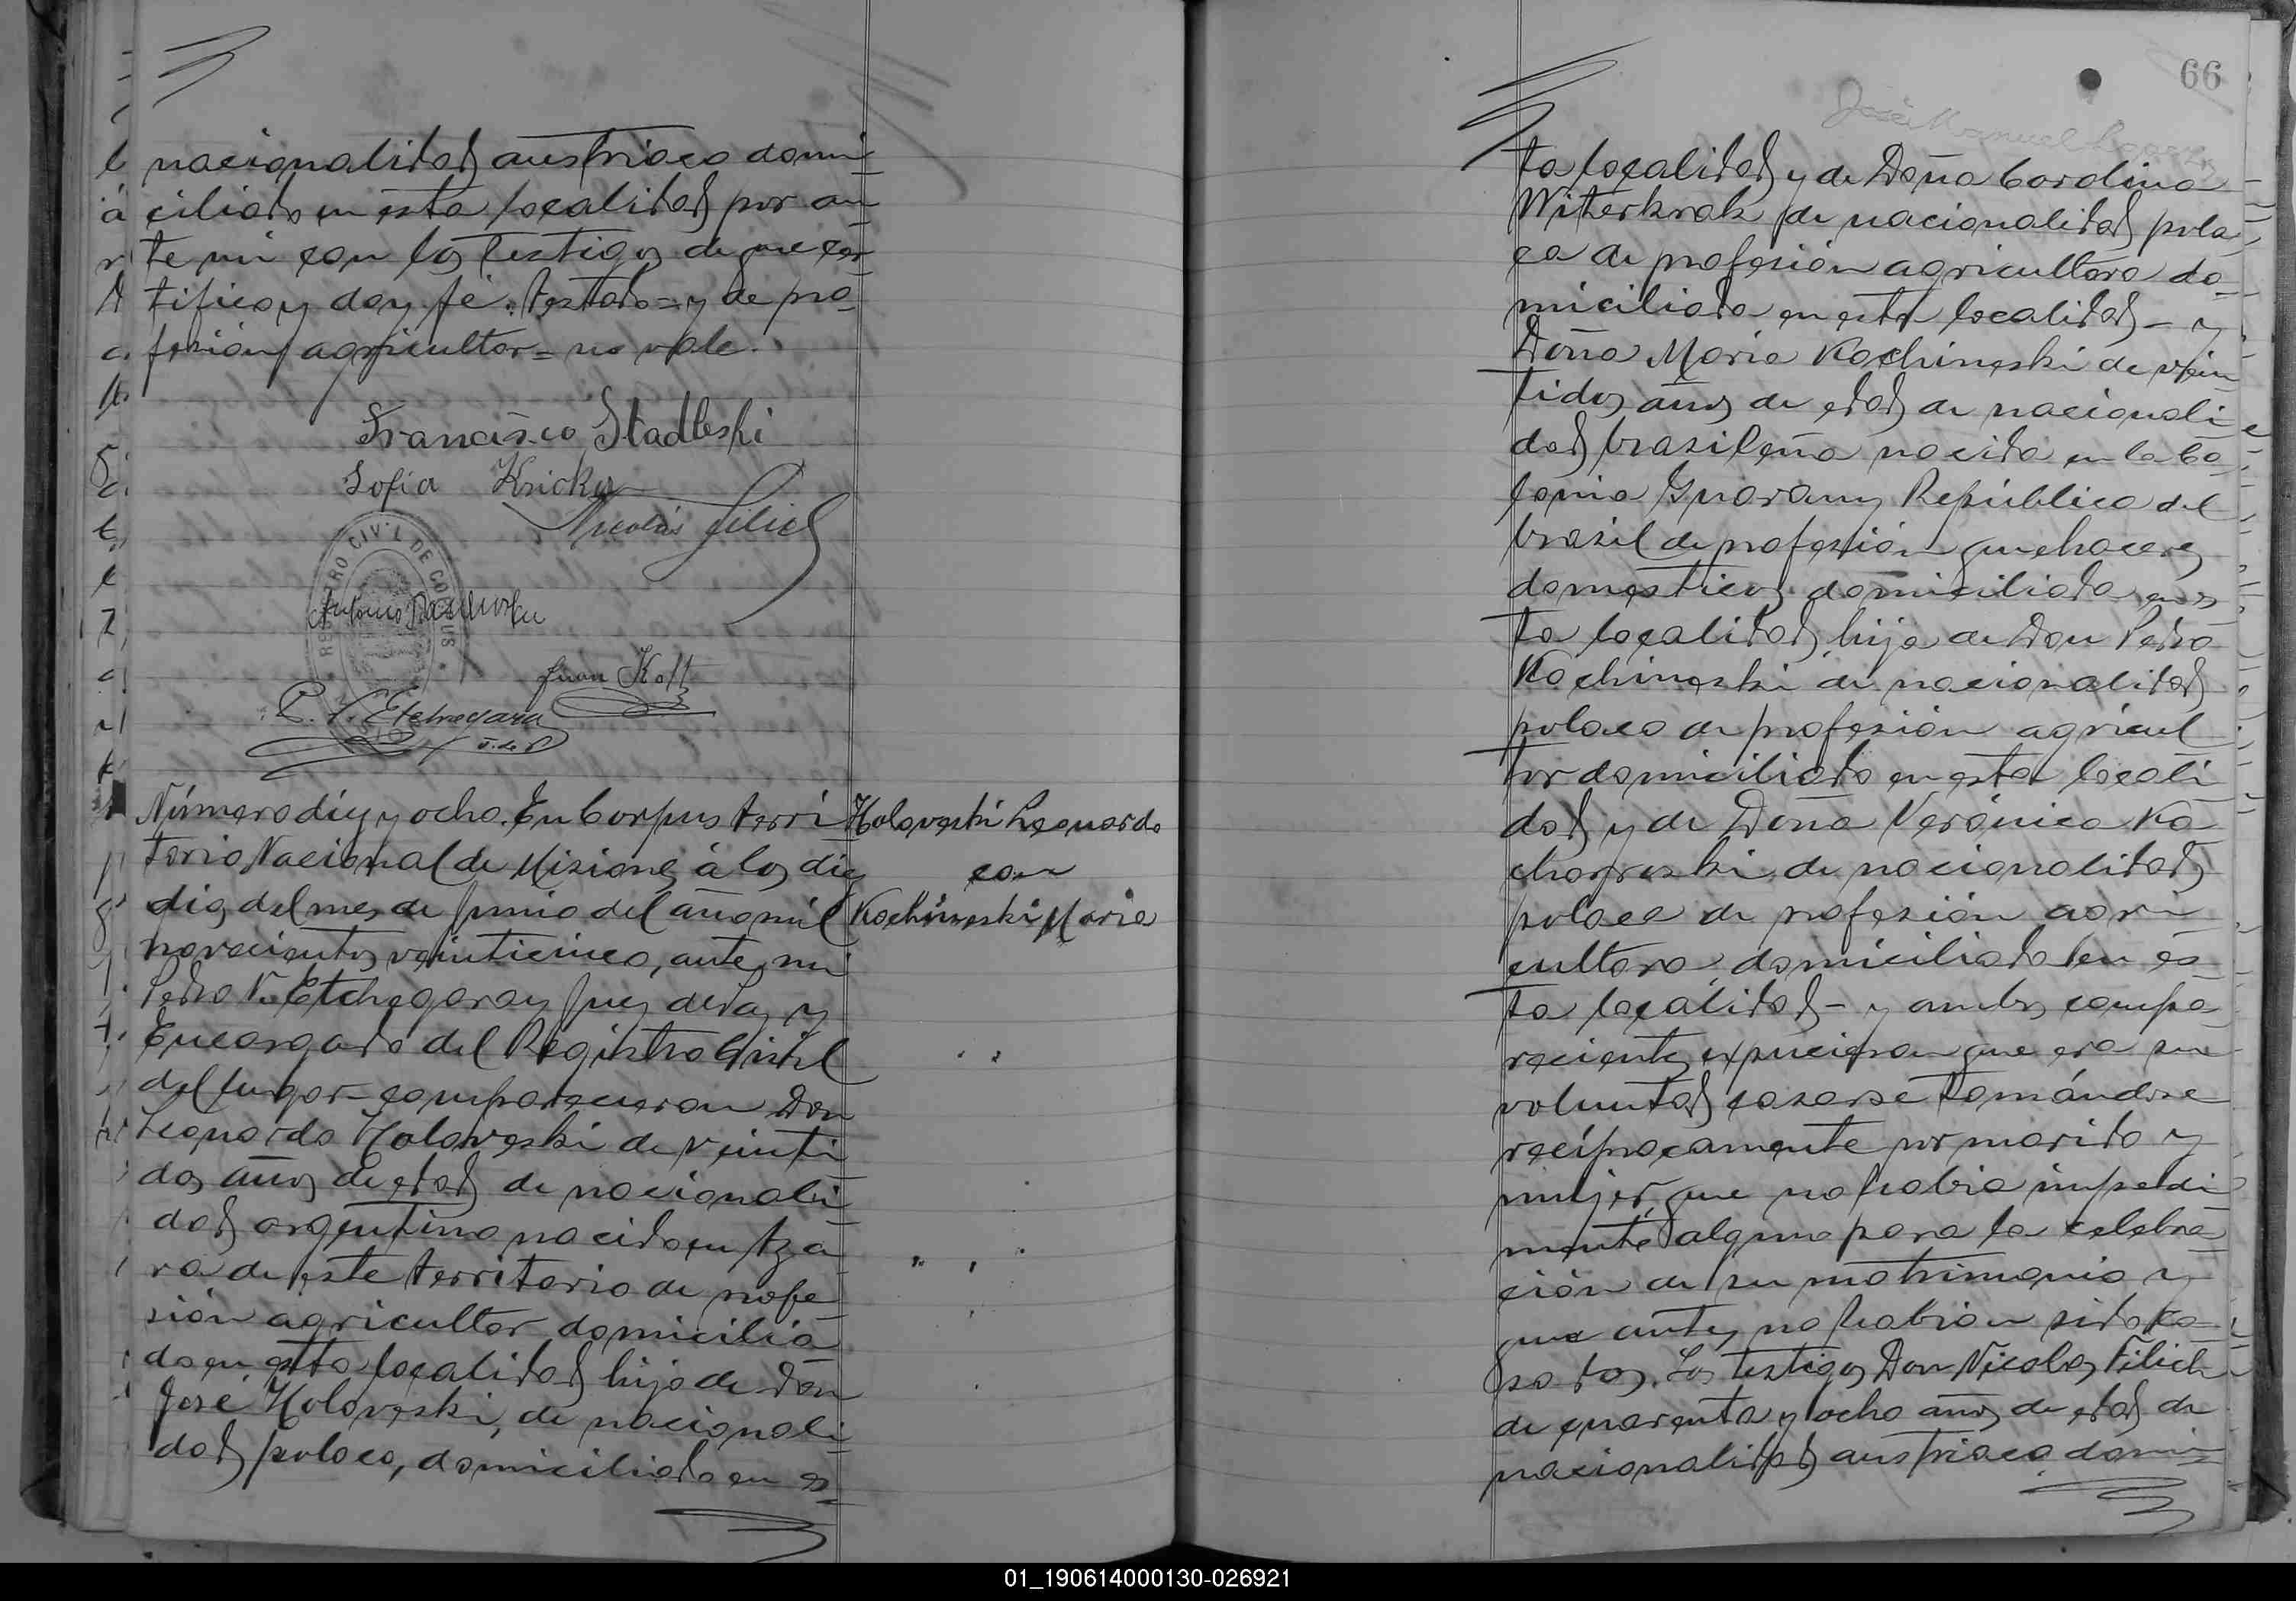 nacionalidad austriaco domi
ciliado en esta localidad por an
te mi con los testigos de que cer
tifico y doy fé. Testado = y de pro
fesión agricultor = no vale.
Francisco Stadleski
Sofia Kricky
Nicolás Filich
REGISTRO CIVIL DE CORPUS
Antonio
Juan Kott
P. V. Etchegaray
J. de P.
Número diez y ocho. En Corpus terri
torio Nacional de Misiones á los diez
dias del mes de Junio del año mil
novecientos veinticinco, ante mi
Pedro V. Etchegaray Juez de Paz y
Encargado del Registro Civil
del lugar - comparecieron Don
Leonardo Holoveski de veinti
dos años de edad de nacionali
dad argentino nacido en Aza
ra de este territorio de profe
sión agricultor domicilia
do en esta localidad hijo de Don
José Holoveski, de nacionali
dad polaco, domiciliado en es
Holoveski Leonardo
con
Kochineski Maria
66
José Manuel
ta localidad y de Doña Carolina
Witerkrak de nacionalidad pola
ca de profesión agricultora do
miciliada en esta localidad - y
Doña Maria Kochineski de vein
tidos años de edad de nacionali
dad brasileña nacida en la Co
lonia Guarany República del
Brasil de profesión quehaceres
domesticos domiciliada en es
ta localidad, hija de Don Pedro
Kochineski de nacionalidad
polaco de profesión agricul
tor domiciliado en esta locali
dad y de Doña Verónica Ka
de nacionalidad
polaca de profesión agri
cultora domiciliada en es
ta localidad - y ambos compa
recientes expucieron que era su
voluntad casarse tomándose
recíprocamente por marido y
mujer, que no habia impedi
mento alguno para la celebra
ción de su matrimonio y
que antes no habian sido ca
sados. Los testigos Don Nicolas Filich
de cuarenta y ocho años de edad de
nacionalidad austriaco domi
01_190614000130-026921